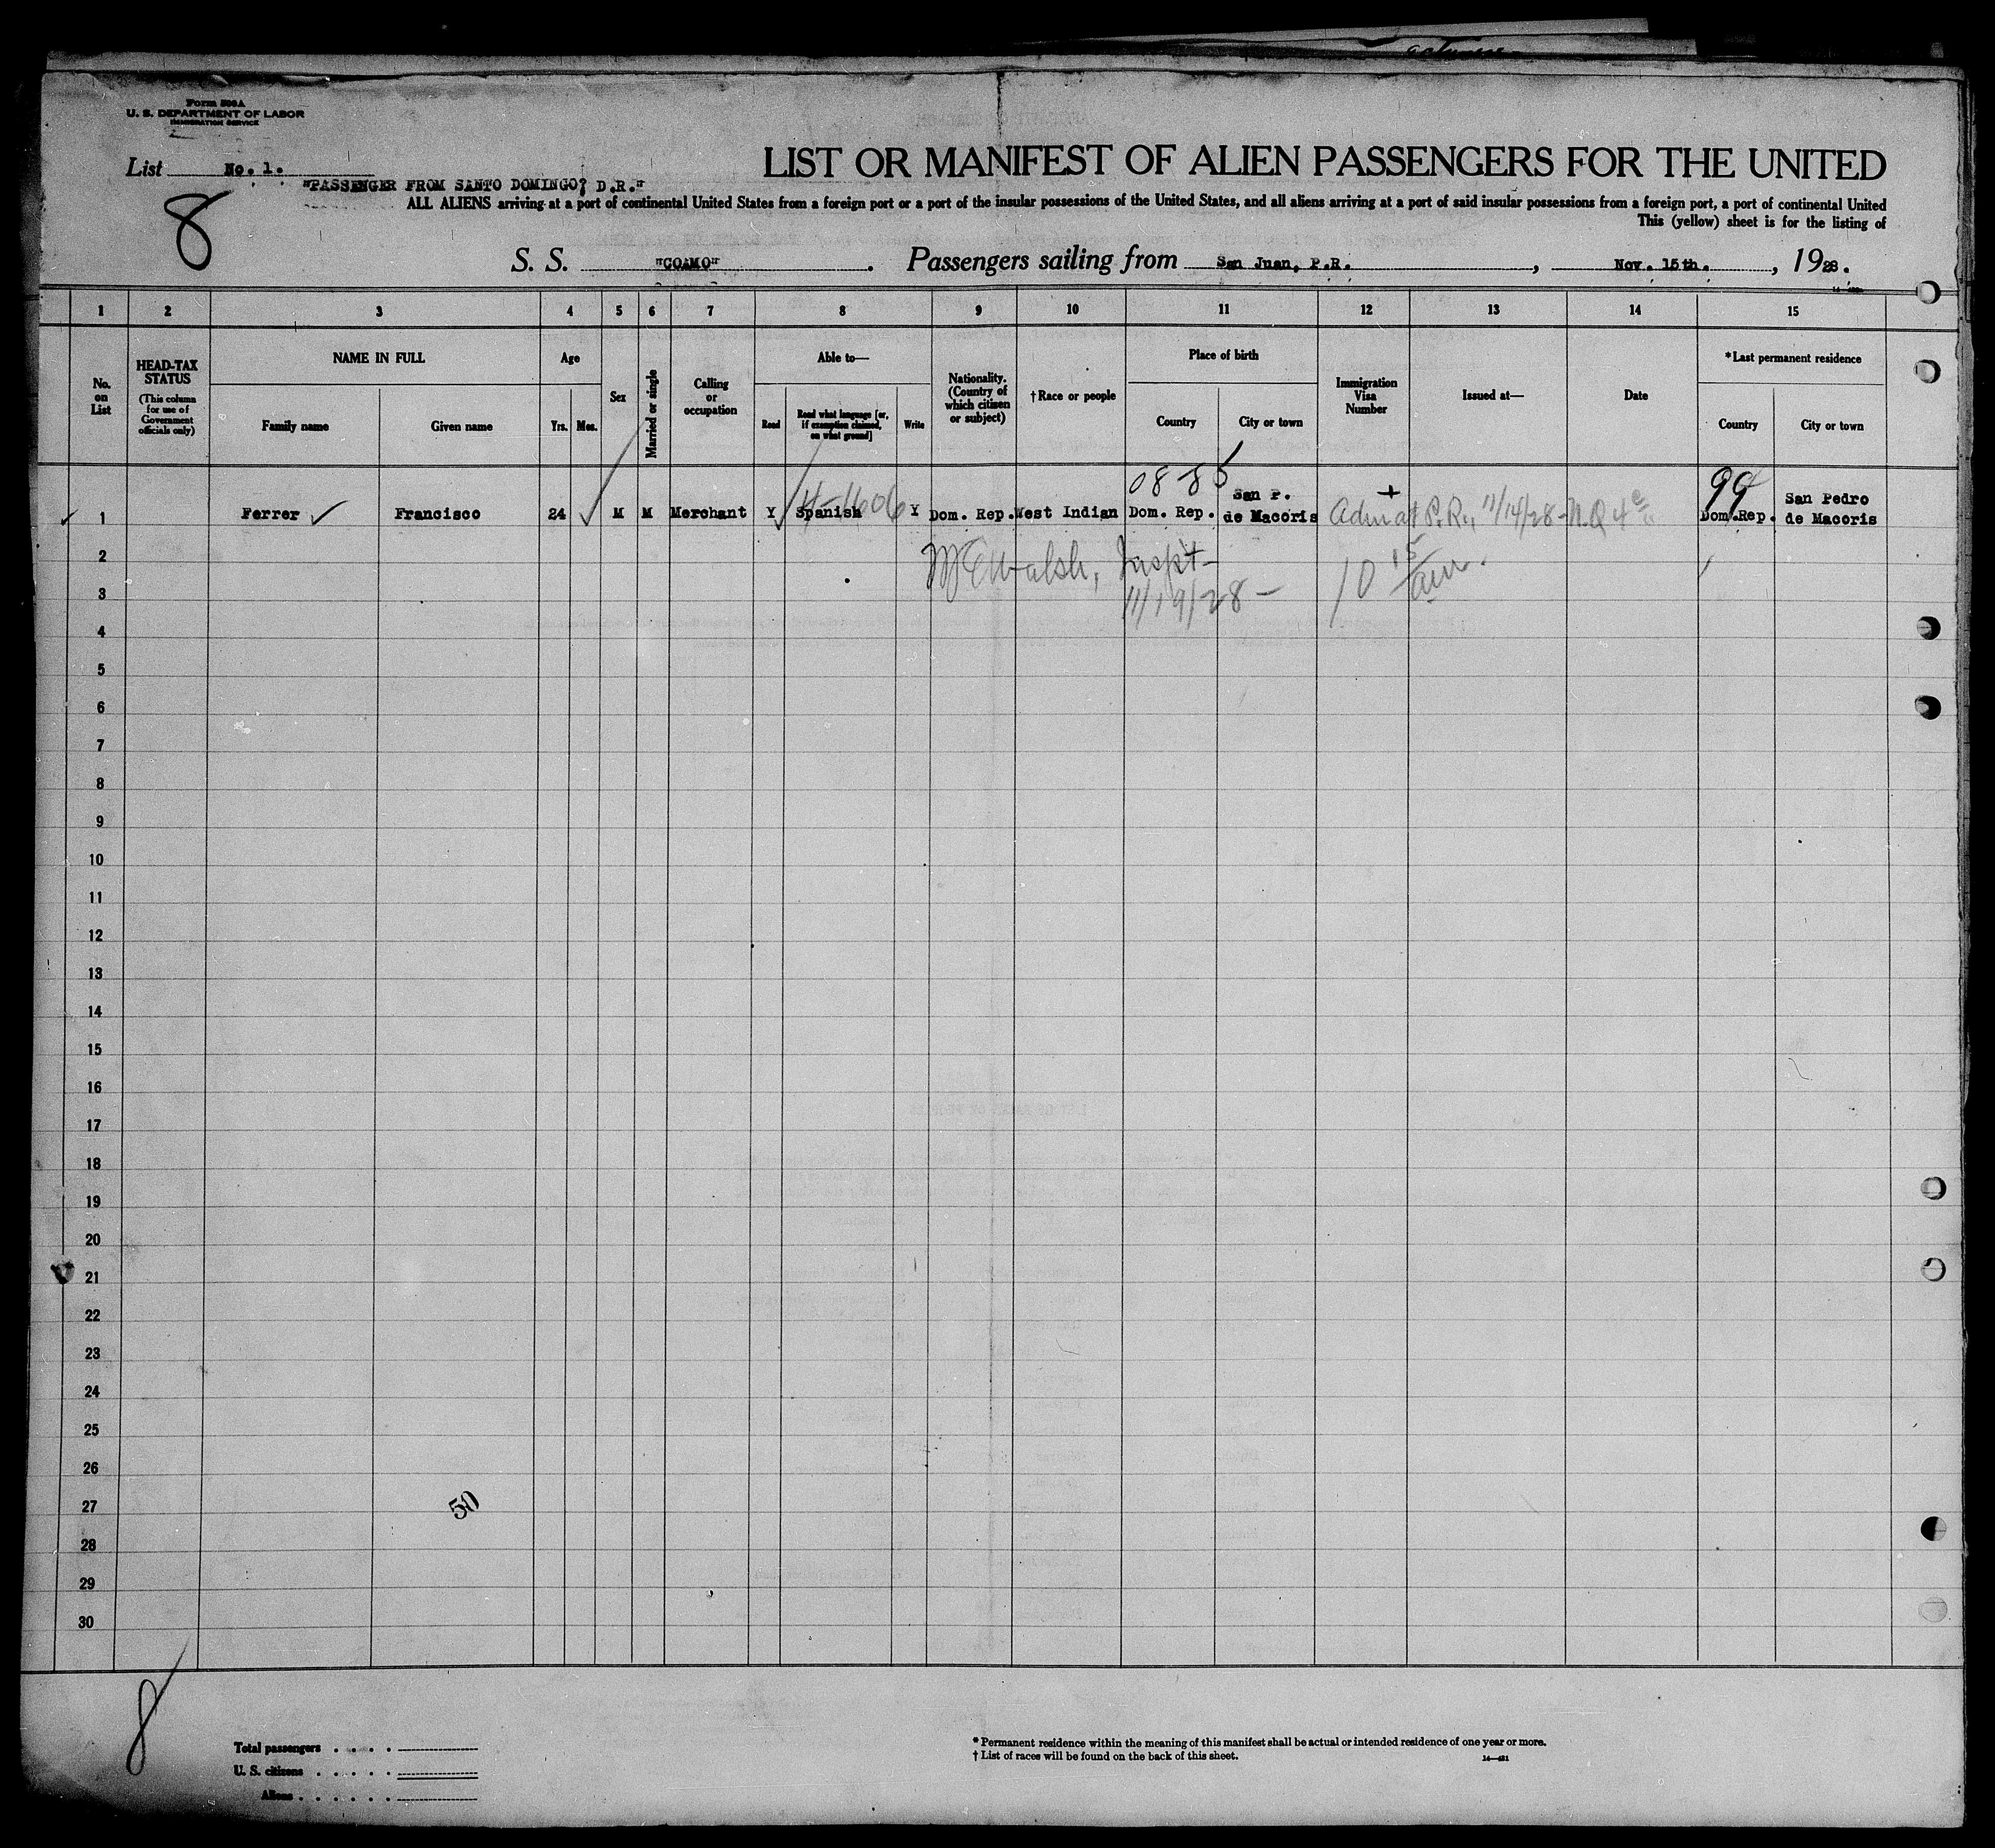 Form 500A
U. S. DEPARTMENT OF LABOR
IMMIGRATION SERVICE
List No. 1.
LIST OR MANIFEST OF ALIEN PASSENGERS FOR THE UNITED
"PASSENGER FROM SANTO DOMINGO? D.R."
ALL ALIENS arriving at a port of continental United States from a foreign port or a port of the insular possessions of the United States, and all aliens arriving at a port of said insular possessions from a foreign port, a port of continental United
This (yellow) sheet is for the listing of
8
S. S. "COAMO". Passengers sailing from San Juan, P.R., Nov. 15th., 1928.
1 2 3 4 5 6 7 8 9 10 11 12 13 14 15
No. on List
HEAD-TAX STATUS
(This column for use of Government officials only)
NAME IN FULL
Family name Given name
Age
Yrs. Mos.
Sex
Married or single
Calling or occupation
Able to—
Read
Read what language [or, if exemption claimed, on what ground]
Write
Nationality. (Country of which citizen or subject)
†Race or people
Place of birth
Country City or town
Immigration Visa Number
Issued at—
Date
*Last permanent residence
Country City or town
08-85 99
4-1606
1 Ferrer Francisco 24 M M Merchant Y Spanish Y Dom. Rep. West Indian Dom. Rep. San P. de Macoris Adm at P.R., 11/14/28-N.Q 4c Dom.Rep. San Pedro de Macoris
2 Walsh, Inspt- 10 15/am.
3 11/19/28-
4
5
6
7
8
9
10
11
12
13
14
15
16
17
18
19
20
21
22
23
24
25
26
27
50
28
29
30
8
Total passengers
U. S. citizens
Aliens
* Permanent residence within the meaning of this manifest shall be actual or intended residence of one year or more.
† List of races will be found on the back of this sheet.